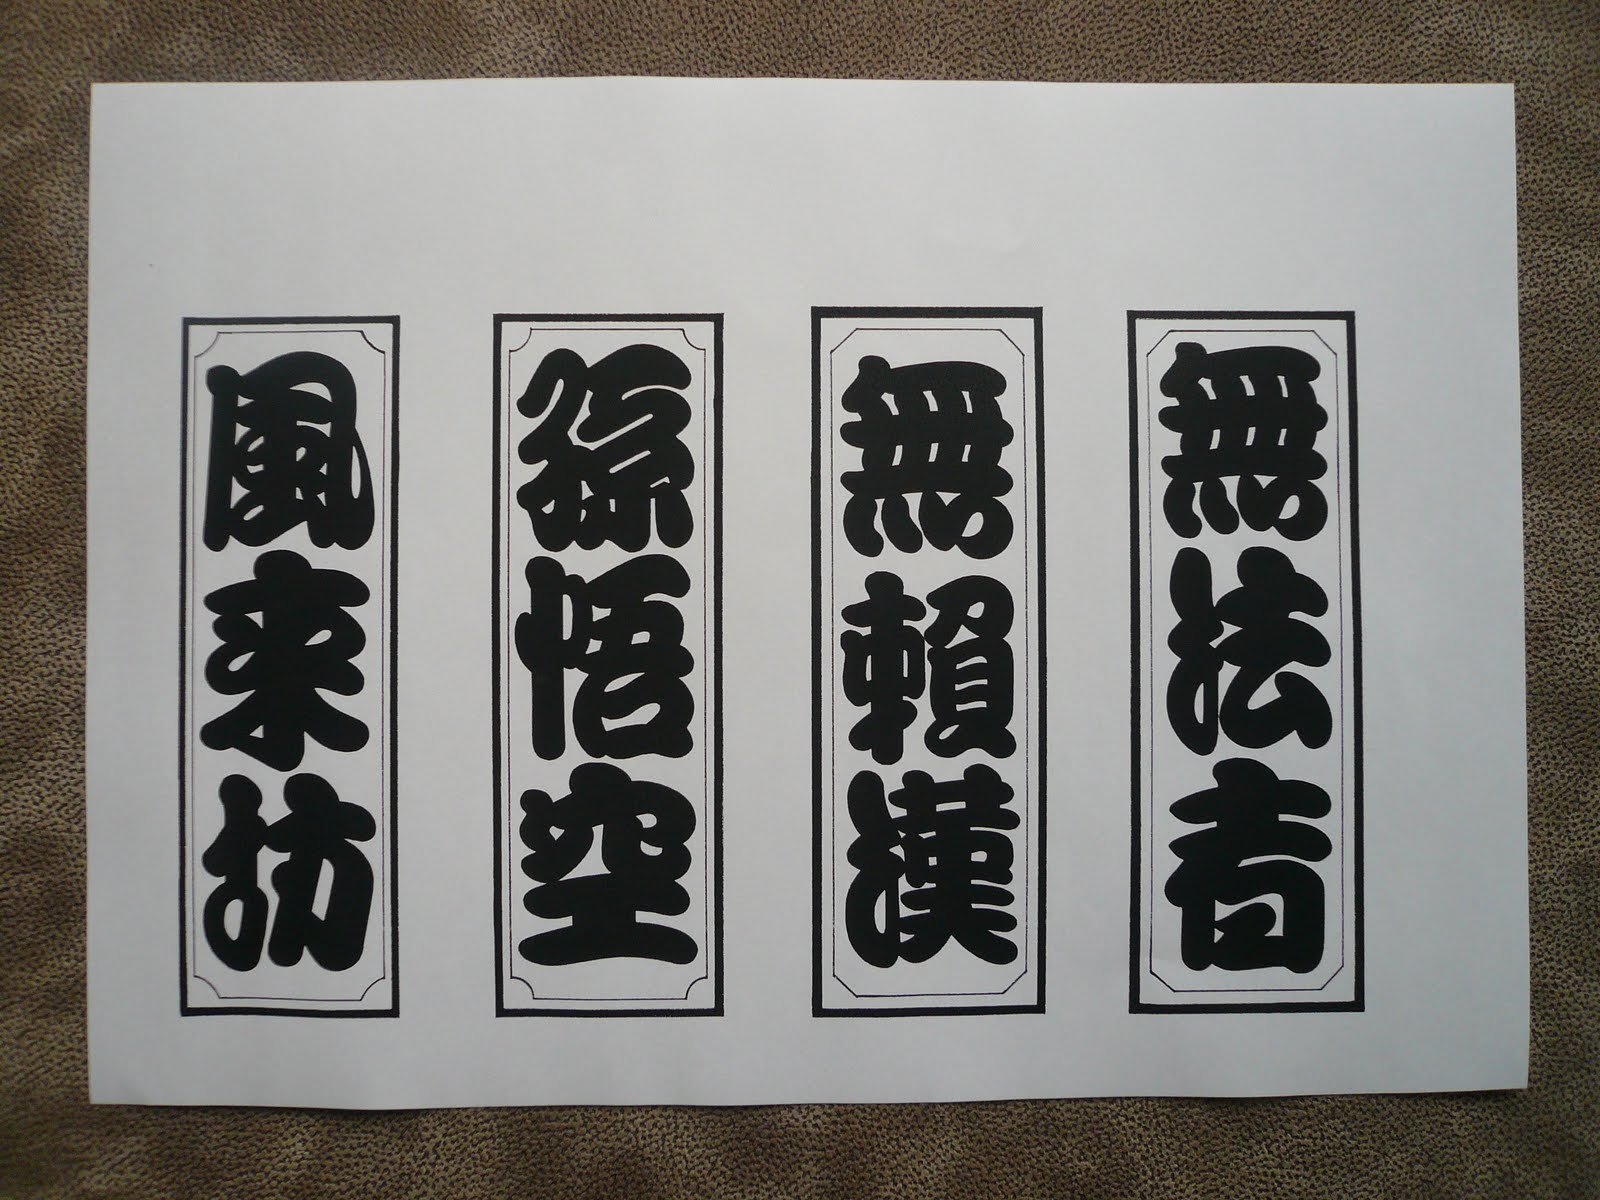 無法者
無頼漢
孫悟空
風来坊